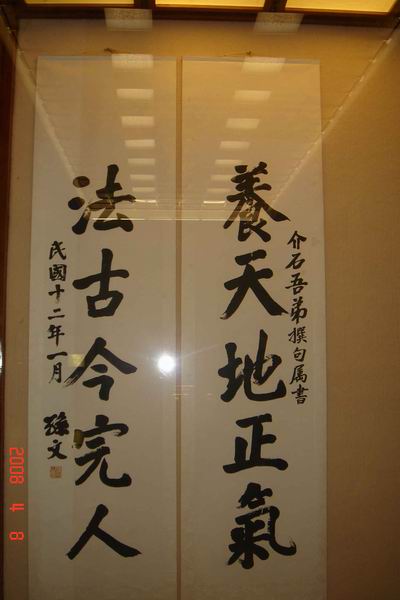 養天地正氣
介石吾弟撰句属書
法古今完人
民國十二年一月
孫文
2008 4 8